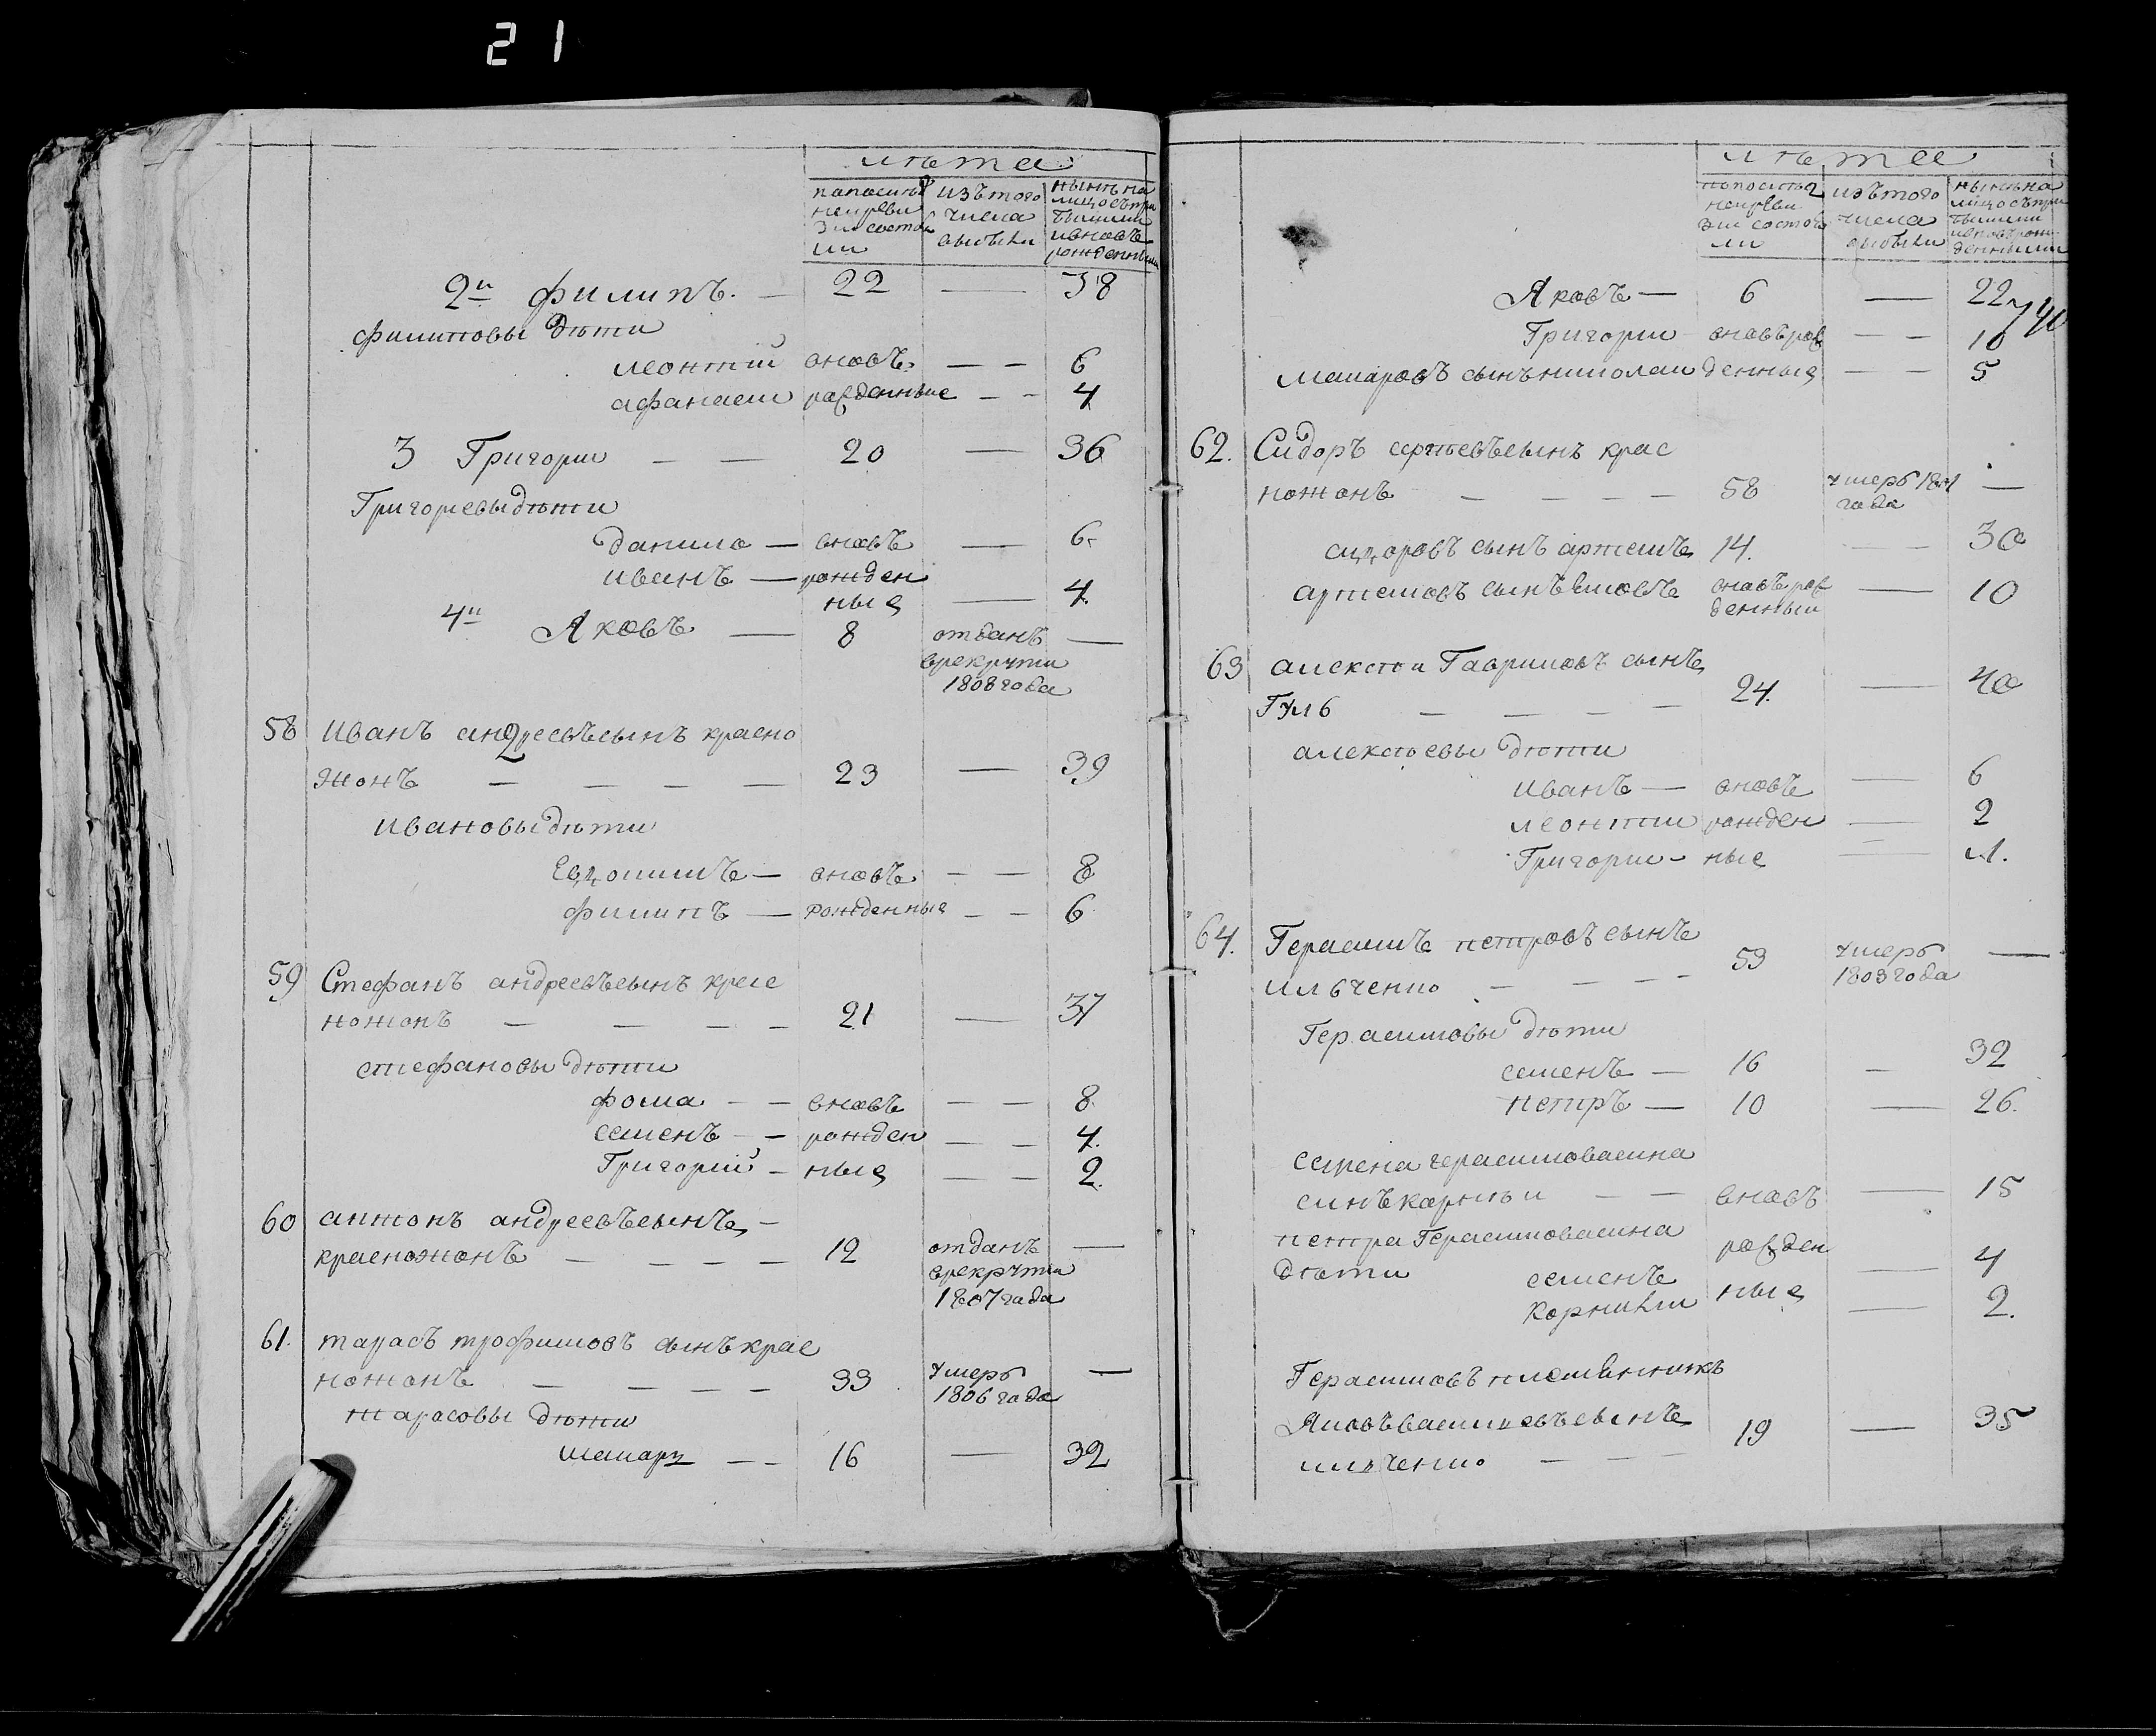 21
лѣта
попоследъ изътого нынѣна
ней реви числа лицо съпри
зии состоя выбыли бышими
ли ивновь
рожденными
2й Филипъ — 22 — 38
Филиповы дѣти
леонтий вновь — — 6
афанаси рожденные — — 4
3 Григори — — 20 — 36
Григоревы дѣти
данило — вновь — 6
иванъ — рожден
ные — 4
4й Яковъ — 8 отданъ —
врекрути
1808 года
58 Иванъ андреевъ сынъ красно
жонъ — — — — 23 — 39
Ивановы дѣти
Евдокимъ — вновь — — 8
филипъ — рожденные — — 6
59 Стефанъ андреевъ сынъ крас
ножонъ — — — — 21 — 37
стефановы дѣти
фома — — вновь — — 8
семенъ — — рожден — — 4
Григорий — ные — — 2
60 антонъ андреевъ сынъ —
красножонъ — — — — 12 отданъ —
врекрути
1807 года
61. тарасъ трофимовъ сынъ крас
ножонъ — — — — 33 умеръ —
1806 года
тарасовы дѣти
макаръ — — 16 — 32
лѣта
попоследъ изътого нынѣна
ней реви числа лицо съпри
зии состоя выбыли бышими
ли ивновь рож
денными
Яковъ — 6 — 22
Григори вновь рож — — 10
макаровъ сынъ николаи денные — — 5
62. Сидоръ сергѣевъ сынъ крас
ножонъ — — — — 58 умеръ 1801 —
года
сидоровъ сынъ артемъ 14. — — 30
артемовъ сынъ вновь рож — 10
денный
63 алексѣи Гавриловъ сынъ
Гуль — — — — 24. — 40
алексѣевы дѣти
иванъ — вновь — 6
леонтии рожден — 2
Григори — ные — 1.
64. Герасимъ петровъ сынъ
Ильченко — — — — 53 умеръ —
1803 года
Герасимовы дѣти
семенъ — 16 — 32
петръ — 10 — 26.
семена герасимова сина
синъ карнѣи — — вновь — 15
петра Герасимова сина рожден
дѣти семенъ — 4
Корнили ные — 2.
Герасимовъ племянникъ
Яковъ васильевъ сынъ 19 — 35
илченко — —